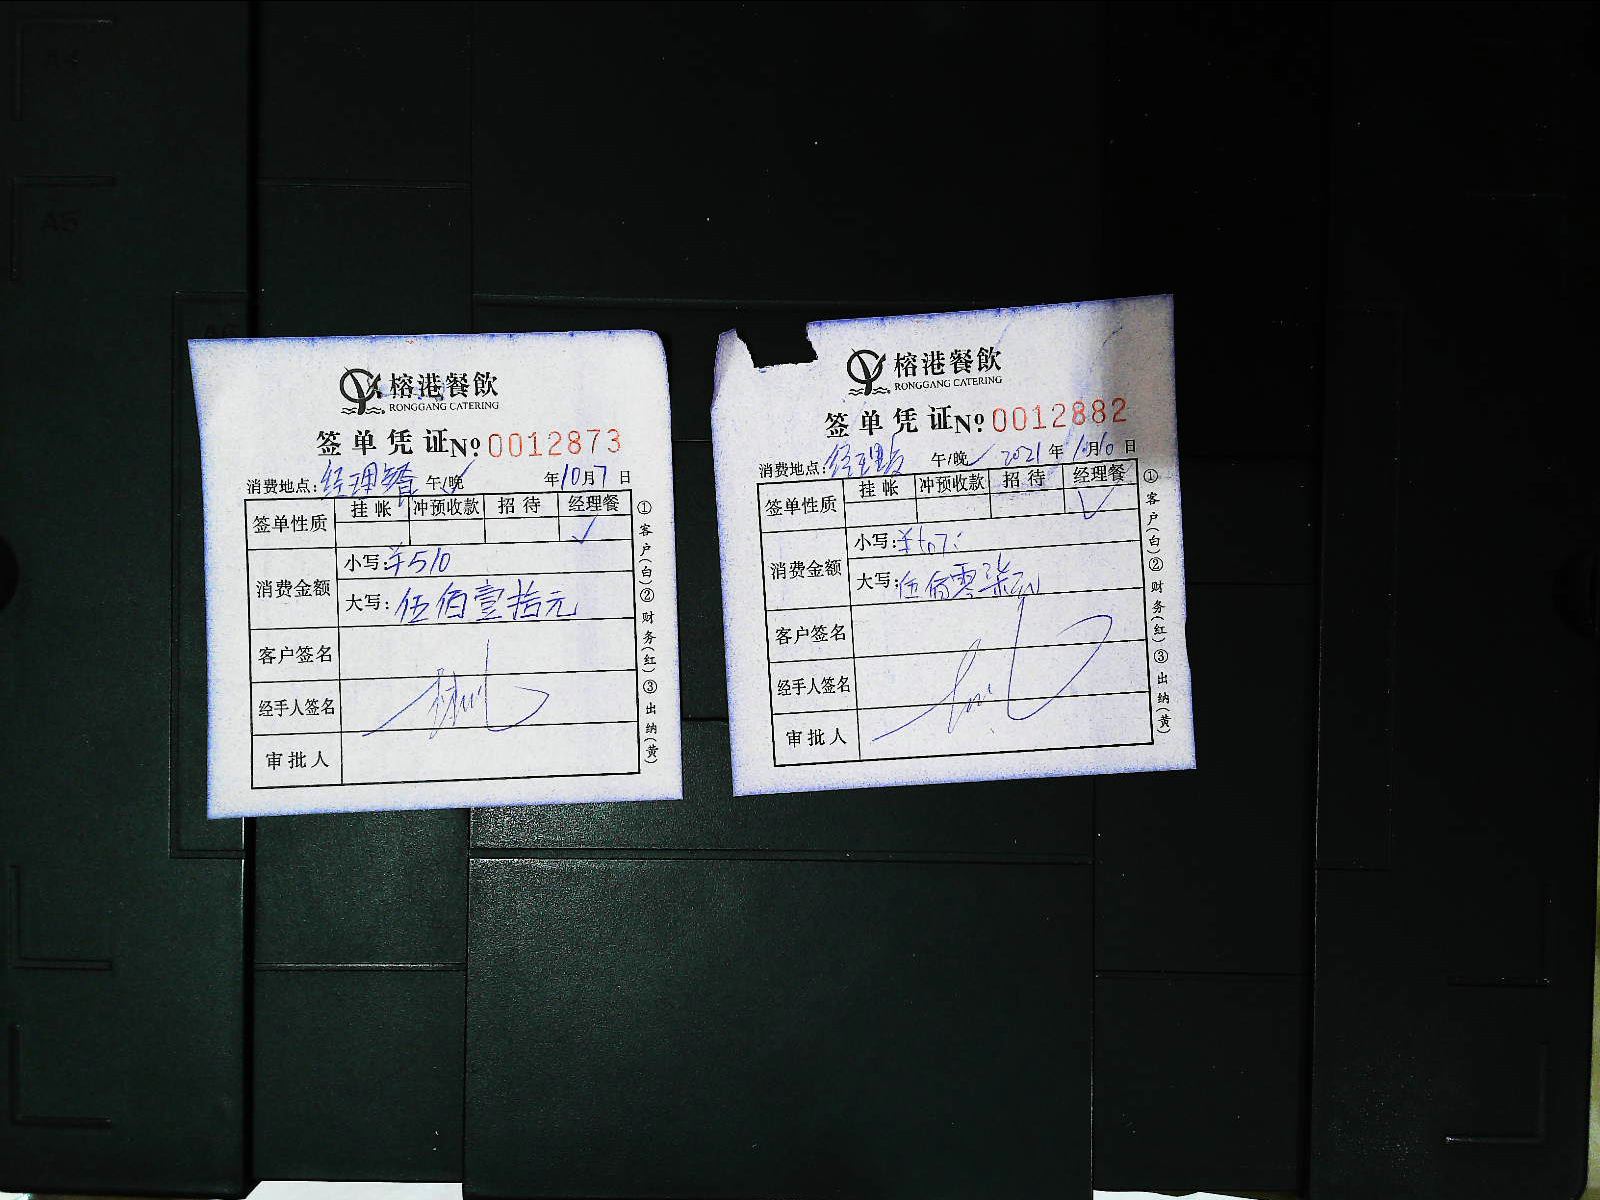 A4
A5
A6
榕港餐飲
RONGGANG CATERING
签单凭证№:0012873
消费地点:经理餐 午/晚 年10月7日
签单性质 挂帐 冲预收款 招待 经理餐
✓
消费金额 小写:¥510
大写:伍佰壹拾元
客户签名
经手人签名
审批人
①客户(白)②财务(红)③出纳(黄)
榕港餐飲
RONGGANG CATERING
签单凭证№:0012882
消费地点:经理 午/晚 2021年10月10日
签单性质 挂帐 冲预收款 招待 经理餐
✓
消费金额 小写:¥507
大写:伍佰零柒元
客户签名
经手人签名
审批人
①客户(白)②财务(红)③出纳(黄)